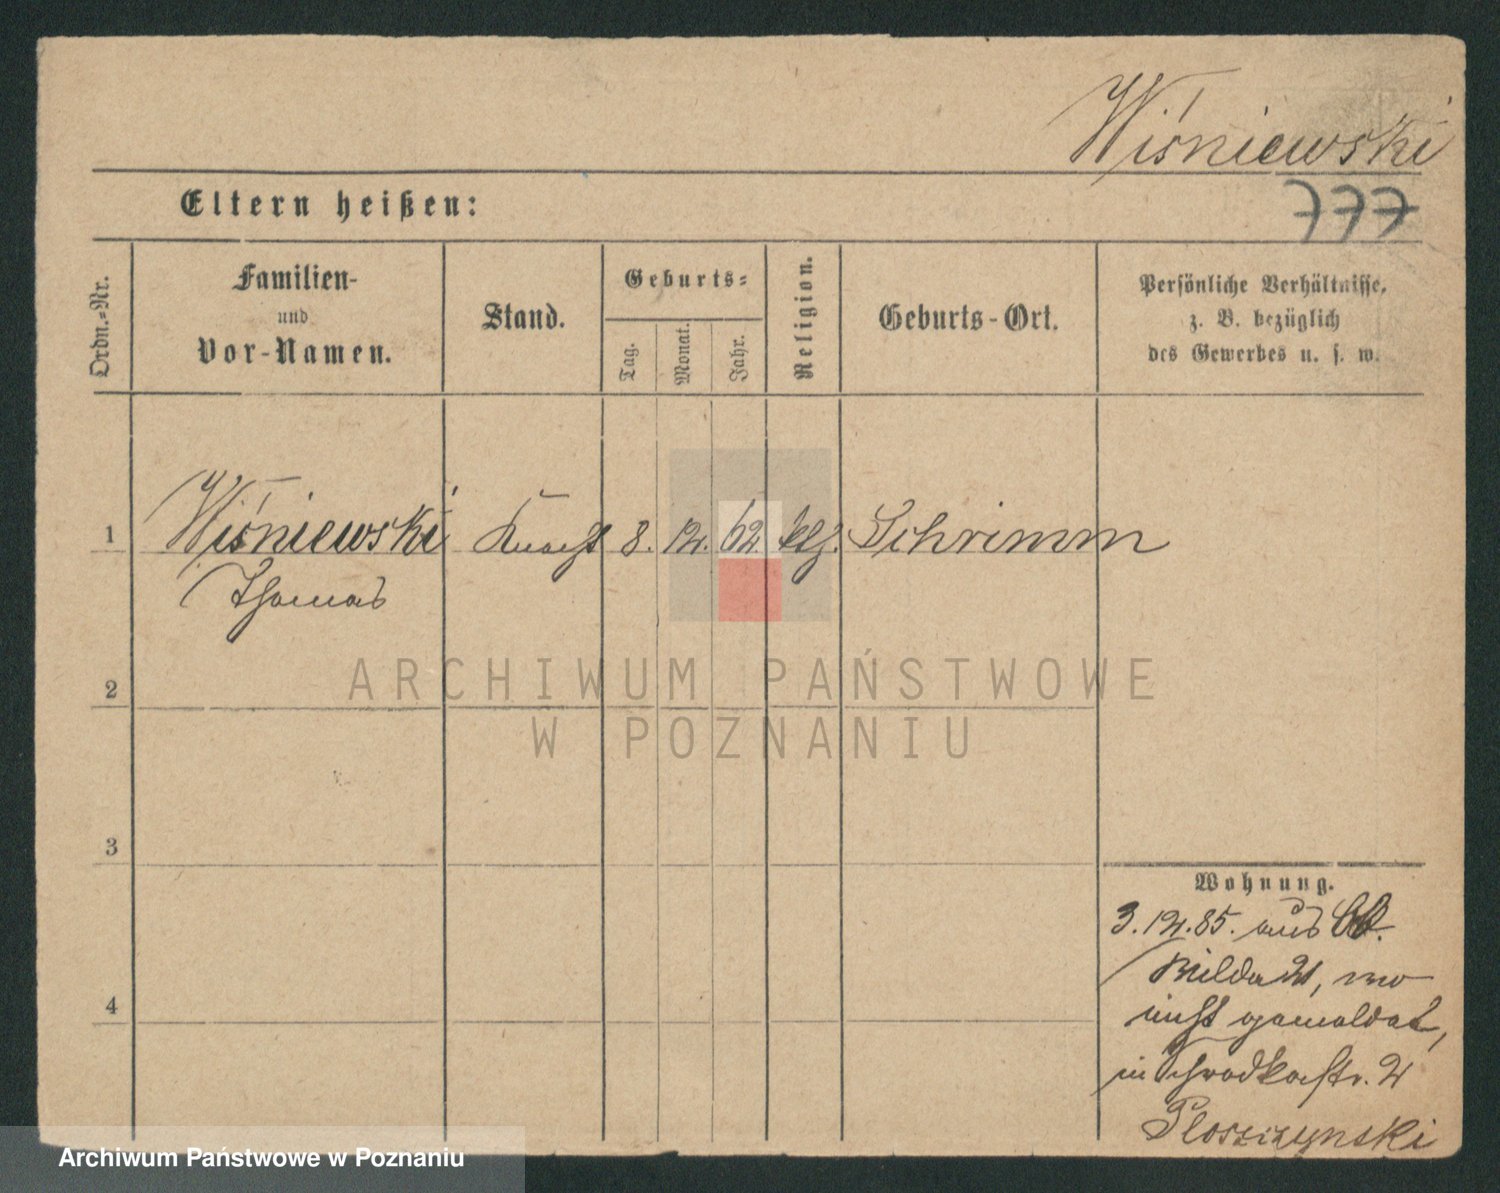 Wiśniewski
Eltern heißen:
777
Ordn.-Nr.
Familien-
und
Vor-Namen.
Stand.
Geburts-
Tag.
Monat.
Jahr.
Religion.
Geburts-Ort.
Persönliche Verhältnisse,
z. B. bezüglich
des Gewerbes u. s. w.
1 Wiśniewski Knecht 8. 12. 62. ktH. Schrimm
Thomas
2
ARCHIWUM PAŃSTWOWE
W POZNANIU
3
Wohnung.
3.12.85. aus
4
nicht gemeldet,
in Schrodkastr. 21
Ploszczynski
Archiwum Państwowe w Poznaniu